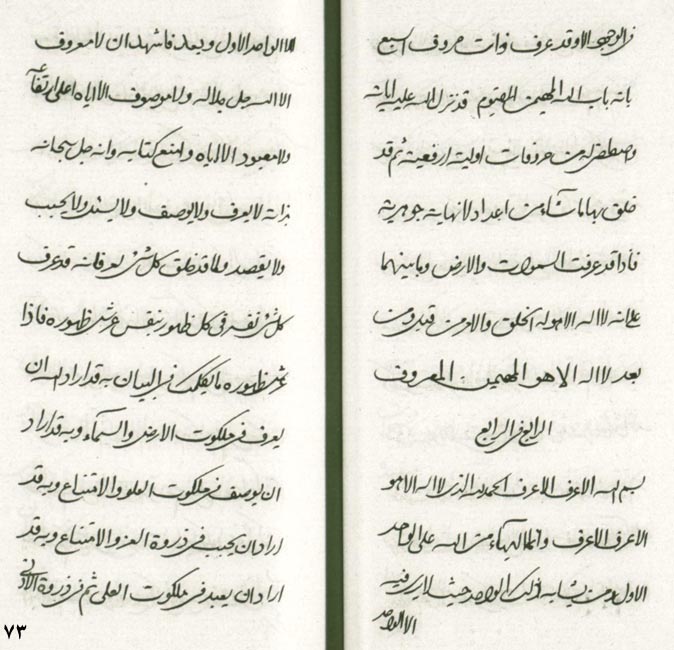 في الوجود الا وقد عرف ذات حروف السبع
بانه باب الله المهيمن القيوم قد نزل الله عليه اياته
واصطفى له من حروفات اوليته ارفعيته ثم قد
خلق بها ما شاء من اعداد لانهاية جوهريته
فاذا قد عرفت السموات والارض وما بينهما
على انه لا اله الا هو له الخلق والامر من قبل ومن
بعد لا اله الا هو المهيمن المعروف
الرابع في الرابع
بسم الله الاعرف الاعرف الحمد لله الذي لا اله الا هو
الاعرف الاعرف وانما البهاء من الله على الواحد
الاول ومن يشابه ذلك الواحد حيث لا يرى فيه
الا الواحد
الا الواحد الاول وبعد فاشهد ان لا معروف
الا الله جل جلاله ولا موصوف الا اياه اعلى ارتفاعه
ولا معبود الا اياه وامنع كتابيه وانه جل سبحانه
بذاته لا يعرف ولا يوصف ولا يسند ولا يحيب
ولا يقصد ولما قد خلق كل شئ لعرفانه قد عرف
كل شئ نفسه في كل ظهور بنفس عرش ظهوره فاذا
عرش ظهوره ما يكلمك في البيان به قد اراد الله ان
يعرف في ملكوت الارض والسماء وبه قد اراد
ان يوصف في ملكوت العلو والامتناع وبه قد
اراد ان يحيب في ذروة العز والامتناع وبه قد
اراد ان يعبد في ملكوت العلى ثم في ذروة الادنى
٧٣